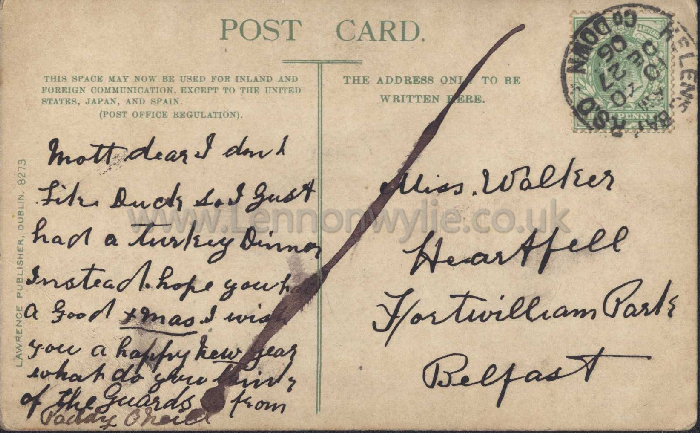 POST CARD.
THIS SPACE MAY NOW BE USED FOR INLAND AND
FOREIGN COMMUNICATION, EXCEPT TO THE UNITED
STATES, JAPAN, AND SPAIN.
(POST OFFICE REGULATION).
THE ADDRESS ONLY TO BE
WRITTEN HERE.
Mott dear I dont
Like Duck so I Just
had a turkey Dinner
Instead. hope you had
a Good xmas I wish
you a happy new year
what do you think
of the Guards from
Paddy
Miss. Walker
Heartfell
Fortwilliam Park
Belfast
LAWRENCE PUBLISHER, DUBLIN. 8273
HELENS BAY R.S.O. Co DOWN
27
06
www.Lennonwylie.co.uk